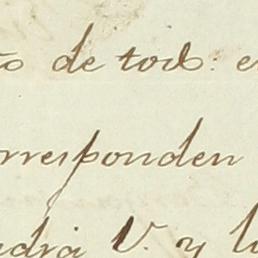 to de tod. e
rresponden
ndrá V. y l